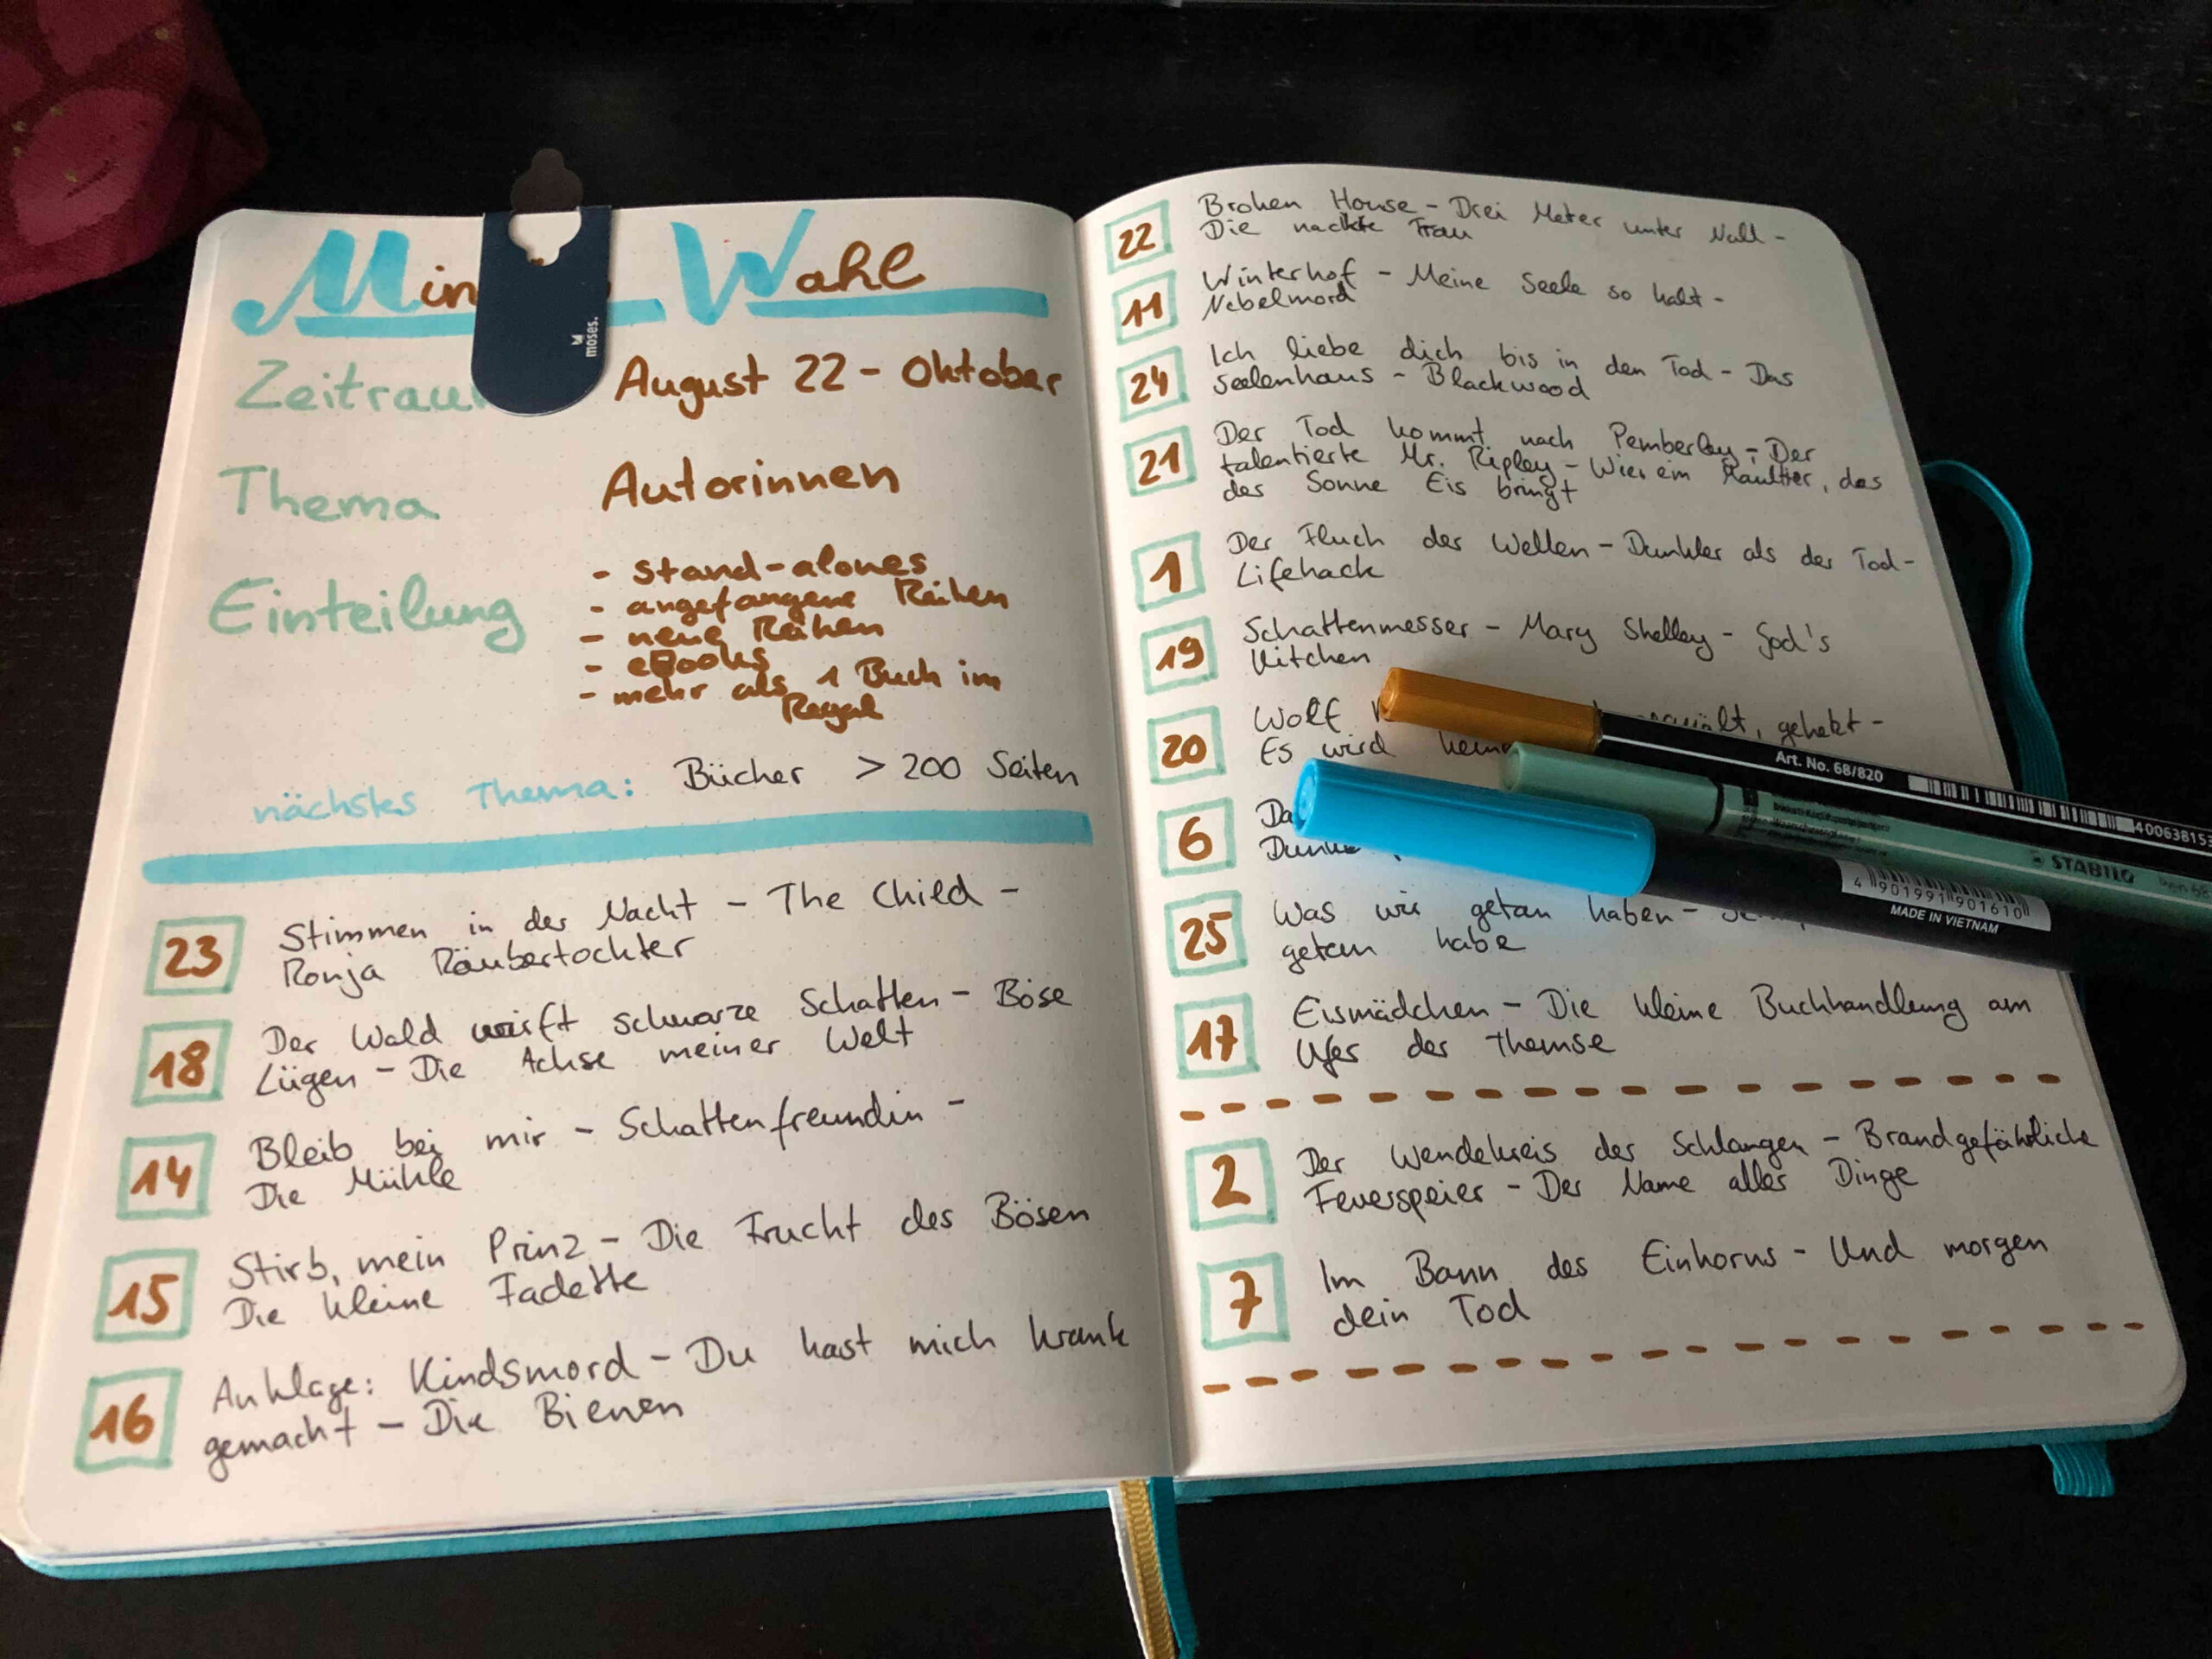 Min Wahl
moses.
Zeitrau August 22 - Oktober
Thema Autorinnen
Einteilung - stand-alones
- angefangene Reihen
- neue Reihen
- eBooks
- mehr als 1 Buch im
Regal
nächstes Thema: Bücher > 200 Seiten
23 Stimmen in der Nacht - The Child -
Ronja Räubertochter
18 Der Wald wirft schwarze Schatten - Böse
Lügen - Die Achse meiner Welt
14 Bleib bei mir - Schattenfreundin -
Die Mühle
15 Stirb, mein Prinz - Die Frucht des Bösen
Die kleine Fadette
16 Anklage: Kindsmord - Du hast mich krank
gemacht - Die Bienen
22 Broken House - Drei Meter unter Null -
Die nackte Frau
11 Winterhof - Meine Seele so kalt -
Nebelmord
24 Ich liebe dich bis in den Tod - Das
Seelenhaus - Blackwood
21 Der Tod kommt nach Pemberley - Der
talentierte Mr. Ripley - Wie ein Maultier, das
der Sonne Eis bringt
1 Der Fluch der Wellen - Dunkler als der Tod -
Lifehack
19 Schattenmesser - Mary Shelley - God's
Kitchen
20 Wolf gehetzt -
Es wird
6 Da
25 Was wir getan haben -
getan habe
17 Eismädchen - Die kleine Buchhandlung am
Ufer der Themse
2 Der Wendekreis der Schlangen - Brandgefährliche
Feuerspeier - Der Name aller Dinge
7 Im Bann des Einhorns - Und morgen
dein Tod
Art. No. 68/820
40063815
STABILO
4 901991 901610
MADE IN VIETNAM